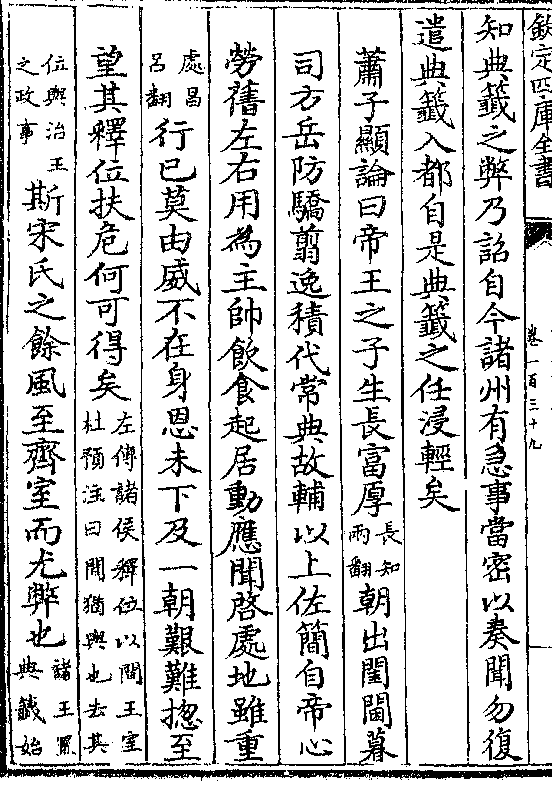 欽定四庫全書
卷一百三十九
知典籤之弊乃詔自今諸州有急事當密以奏聞勿復
遣典籤入都自是典籤之任浸輕矣
蕭子顯論曰帝王之子生長富厚長知兩翻朝出閨閫暮
司方岳防驕翦逸積代常典故輔以上佐簡自帝心
勞舊左右用為主帥飲食起居動應聞啓處地雖重
處昌呂翻行已莫由威不在身恩未下及一朝艱難揔至
望其釋位扶危何可得矣左傳諸侯釋位以間王室杜預注曰間猶與也去其
位與治王之政事斯宋氏之餘風至齊室而尤弊也諸王置典籤始